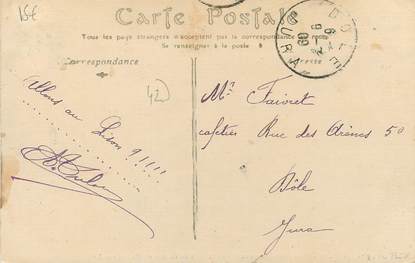 15€
Carte Postale
Tous les pays étrangers n'acceptent pas la correspondance au recto
Se renseigner à la poste
Correspondance
42
Allons au Lison 9 !!!!!
Mr. Faivret
cafetier Rue des Arènes 50
Dôle
Jura